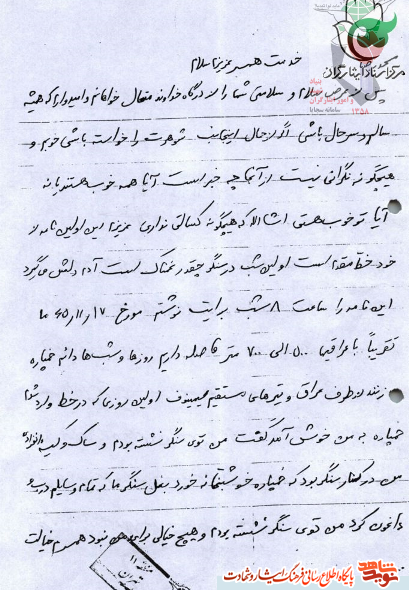 خدمت همسر عزیزم سلام
مرکز اسناد ایثارگران
پس از عرض سلام و سلامتی شما را از درگاه خداوند متعال خواهانم و امیدوارم که همیشه
بنیاد
و امور ایثارگران
۱۳۵۸
سالم و سرحال باشی اگر از حال اینجانب شوهرت را خواسته باشی خوبم و
هیچگونه نگرانی نیست از آنجا چه خبر است آیا همه خوب هستند یا نه
آیا تو خوب هستی انشاالله که هیچگونه کسالتی نداری عزیزم این اولین نامه از
خود خط مقدم است اولین شب در سنگر چقدر غمناک است آدم دلش می‌گیرد
این نامه را ساعت ۸ شب برایت نوشتم مورخ ۶۵/۱۱/۱۷ ما
تقریباً با عراقیها ۵۰۰ الی ۷۰۰ متر فاصله داریم روزها و شب‌ها دائم خمپاره
میزنند از طرف عراق و تیرهای مستقیم اولین روزی که در خط وارد شدم
خمپاره به من خوش آمد گفت من توی سنگر نشسته بودم و ساک و کلیه لوازم
من در کنار سنگر بود که خمپاره خوشبختانه خورد بغل سنگر ما که تمام وسایلم را
داغون کرد من توی سنگر نشسته بودم و هیچ خیالی برای من نبود همسرم خیالت
نوید شاهد
پایگاه اطلاع رسانی فرهنگ ایثار و شهادت
تهران